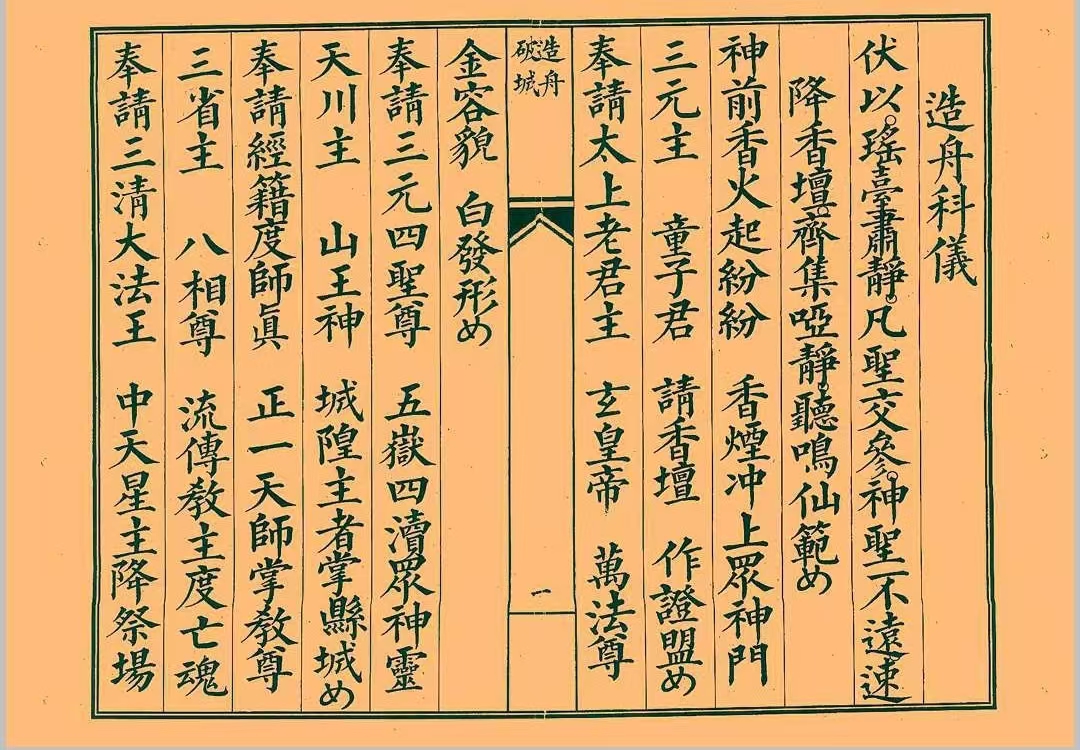 造舟科儀
伏以。瑤臺肅靜。凡聖交參。神聖不遠速
降香壇。齊集啞靜。聽鳴仙範め
神前香火起紛紛 香煙冲上眾神門
三元主 童子君 請香壇 作證盟め
奉請太上老君主 玄皇帝 萬法尊
造舟
破城
一
金容貌 白發形め
奉請三元四聖尊 五嶽四瀆眾神靈
天川主 山王神 城隍主者掌縣城め
奉請經籍度師眞 正一天師掌教尊
三省主 八相尊 流傳教主度亡魂
奉請三清大法王 中天星主降祭場